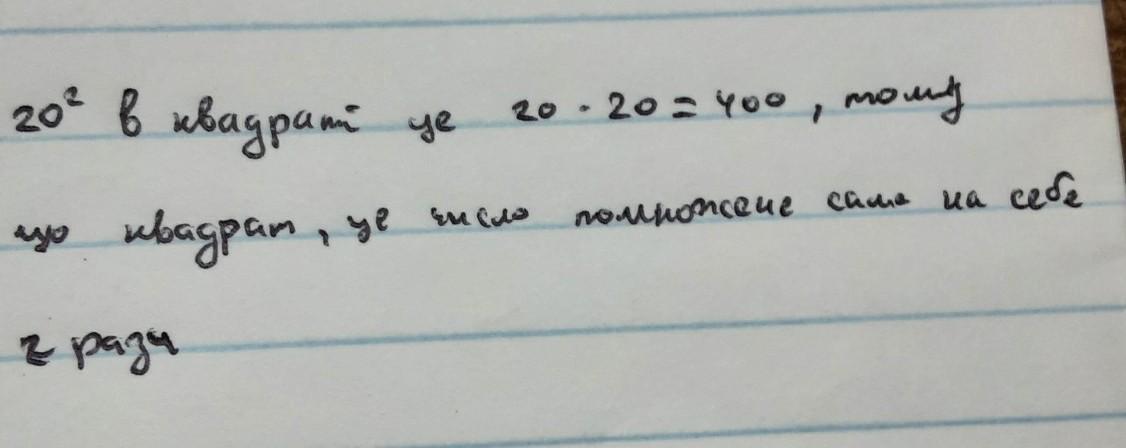 20² в квадраті це 20 · 20 = 400, тому
що квадрат, це число помножене саме на себе
2 рази